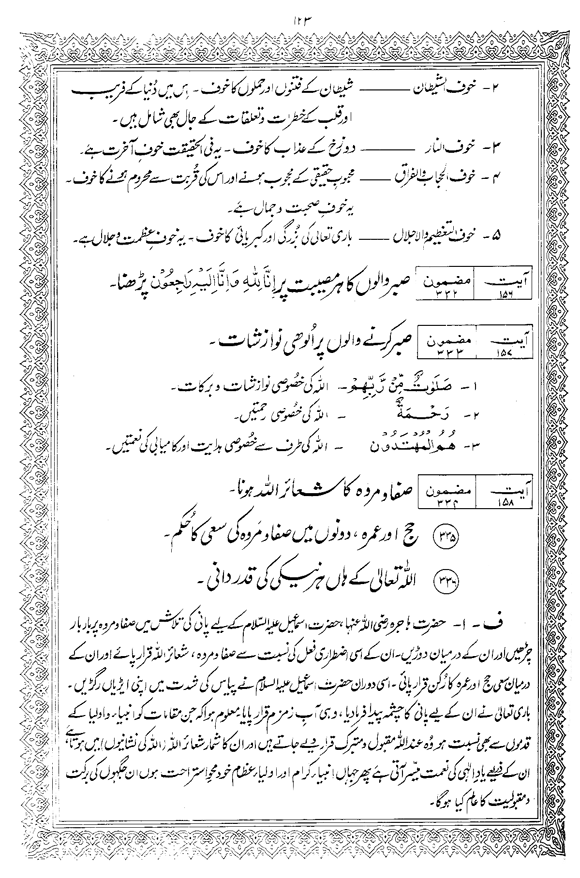 ۱۲۳
۲- خوف الشیطان ——— شیطان کے فتنوں اور حملوں کا خوف - اِس میں دُنیا کے فریب
اور قلب کے خطرات و تعلقات کے جال بھی شامل ہیں -
۳- خوف النار ——— دوزخ کے عذاب کا خوف - یہ فی الحقیقت خوفِ آخرت ہے -
۴- خوف الحجاب الفراق ——— محبوبِ حقیقی کے محجوب ہونے اور اس کی قُربت سے محروم ہونے کا خوف -
یہ خوفِ صحبت و جمال ہے -
۵- خوف التعظیم والاجلال ——— باری تعالیٰ کی بُزرگی اور کبریائی کا خوف - یہ خوفِ عظمت و جلال ہے -
آیت ۱۵۶ مضمون ۳۳۲ صبر والوں کا ہر مصیبت پر اِنَّا لِلّٰهِ وَاِنَّا اِلَيْهِ رَاجِعُوْنَ پڑھنا -
آیت ۱۵۷ مضمون ۳۳۳ صبر کرنے والوں پر اُلوہی نوازشات -
۱- صَلَوٰتٌ مِّنْ رَّبِّهِمْ - اللہ کی خُصوصی نوازشات و برکات -
۲- رَحْمَةٌ - اللہ کی خصوصی رحمتیں -
۳- هُمُ الْمُهْتَدُوْنَ - اللہ کی طرف سے خُصوصی ہدایت اور کامیابی کی نعمتیں -
آیت ۱۵۸ مضمون ۳۳۴ صفا و مروہ کا شعائر اللہ ہونا -
۳۳۵ حج اور عمرہ ، دونوں میں صفا و مَروہ کی سعی کا حُکم -
۳۳۶ اللہ تعالیٰ کے ہاں ہر نیکی کی قدر دانی -
ف - ۱- حضرت ہاجرہ رضی اللہ عنہا، حضرت اسماعیل علیہ السلام کے لیے پانی کی تلاش میں صفا و مروہ پر بار بار
چڑھیں اور ان کے درمیان دوڑیں - ان کے اسی اضطراری فعل کی نسبت سے صفا و مروہ ، شعائر اللہ قرار پائے اور ان کے
درمیان سعی حج اور عمرہ کا رُکن قرار پائی - اسی دوران حضرت اسماعیل علیہ السلام نے پیاس کی شدت میں اپنی ایڑیاں رگڑیں -
باری تعالیٰ نے ان کے لیے پانی کا چشمہ پیدا فرما دیا ، وہی آبِ زمزم قرار پایا معلوم ہوا کہ جن مقامات کو انبیاء و اولیا کے
قدموں سے بھی نسبت ہو وُہ عند اللہ مقبول و متبرک قرار دیے جاتے ہیں اور ان کا شمار شعائر اللہ (اللہ کی نشانیوں) میں ہوتا ہے،
ان کے ذریعے یادِ الٰہی کی نعمت میسّر آتی ہے پھر جہاں انبیاء کرام اور اولیاءِ عظام خود محوِ استراحت ہوں ان جگہوں کی برکت
و مقبولیت کا عالم کیا ہو گا -